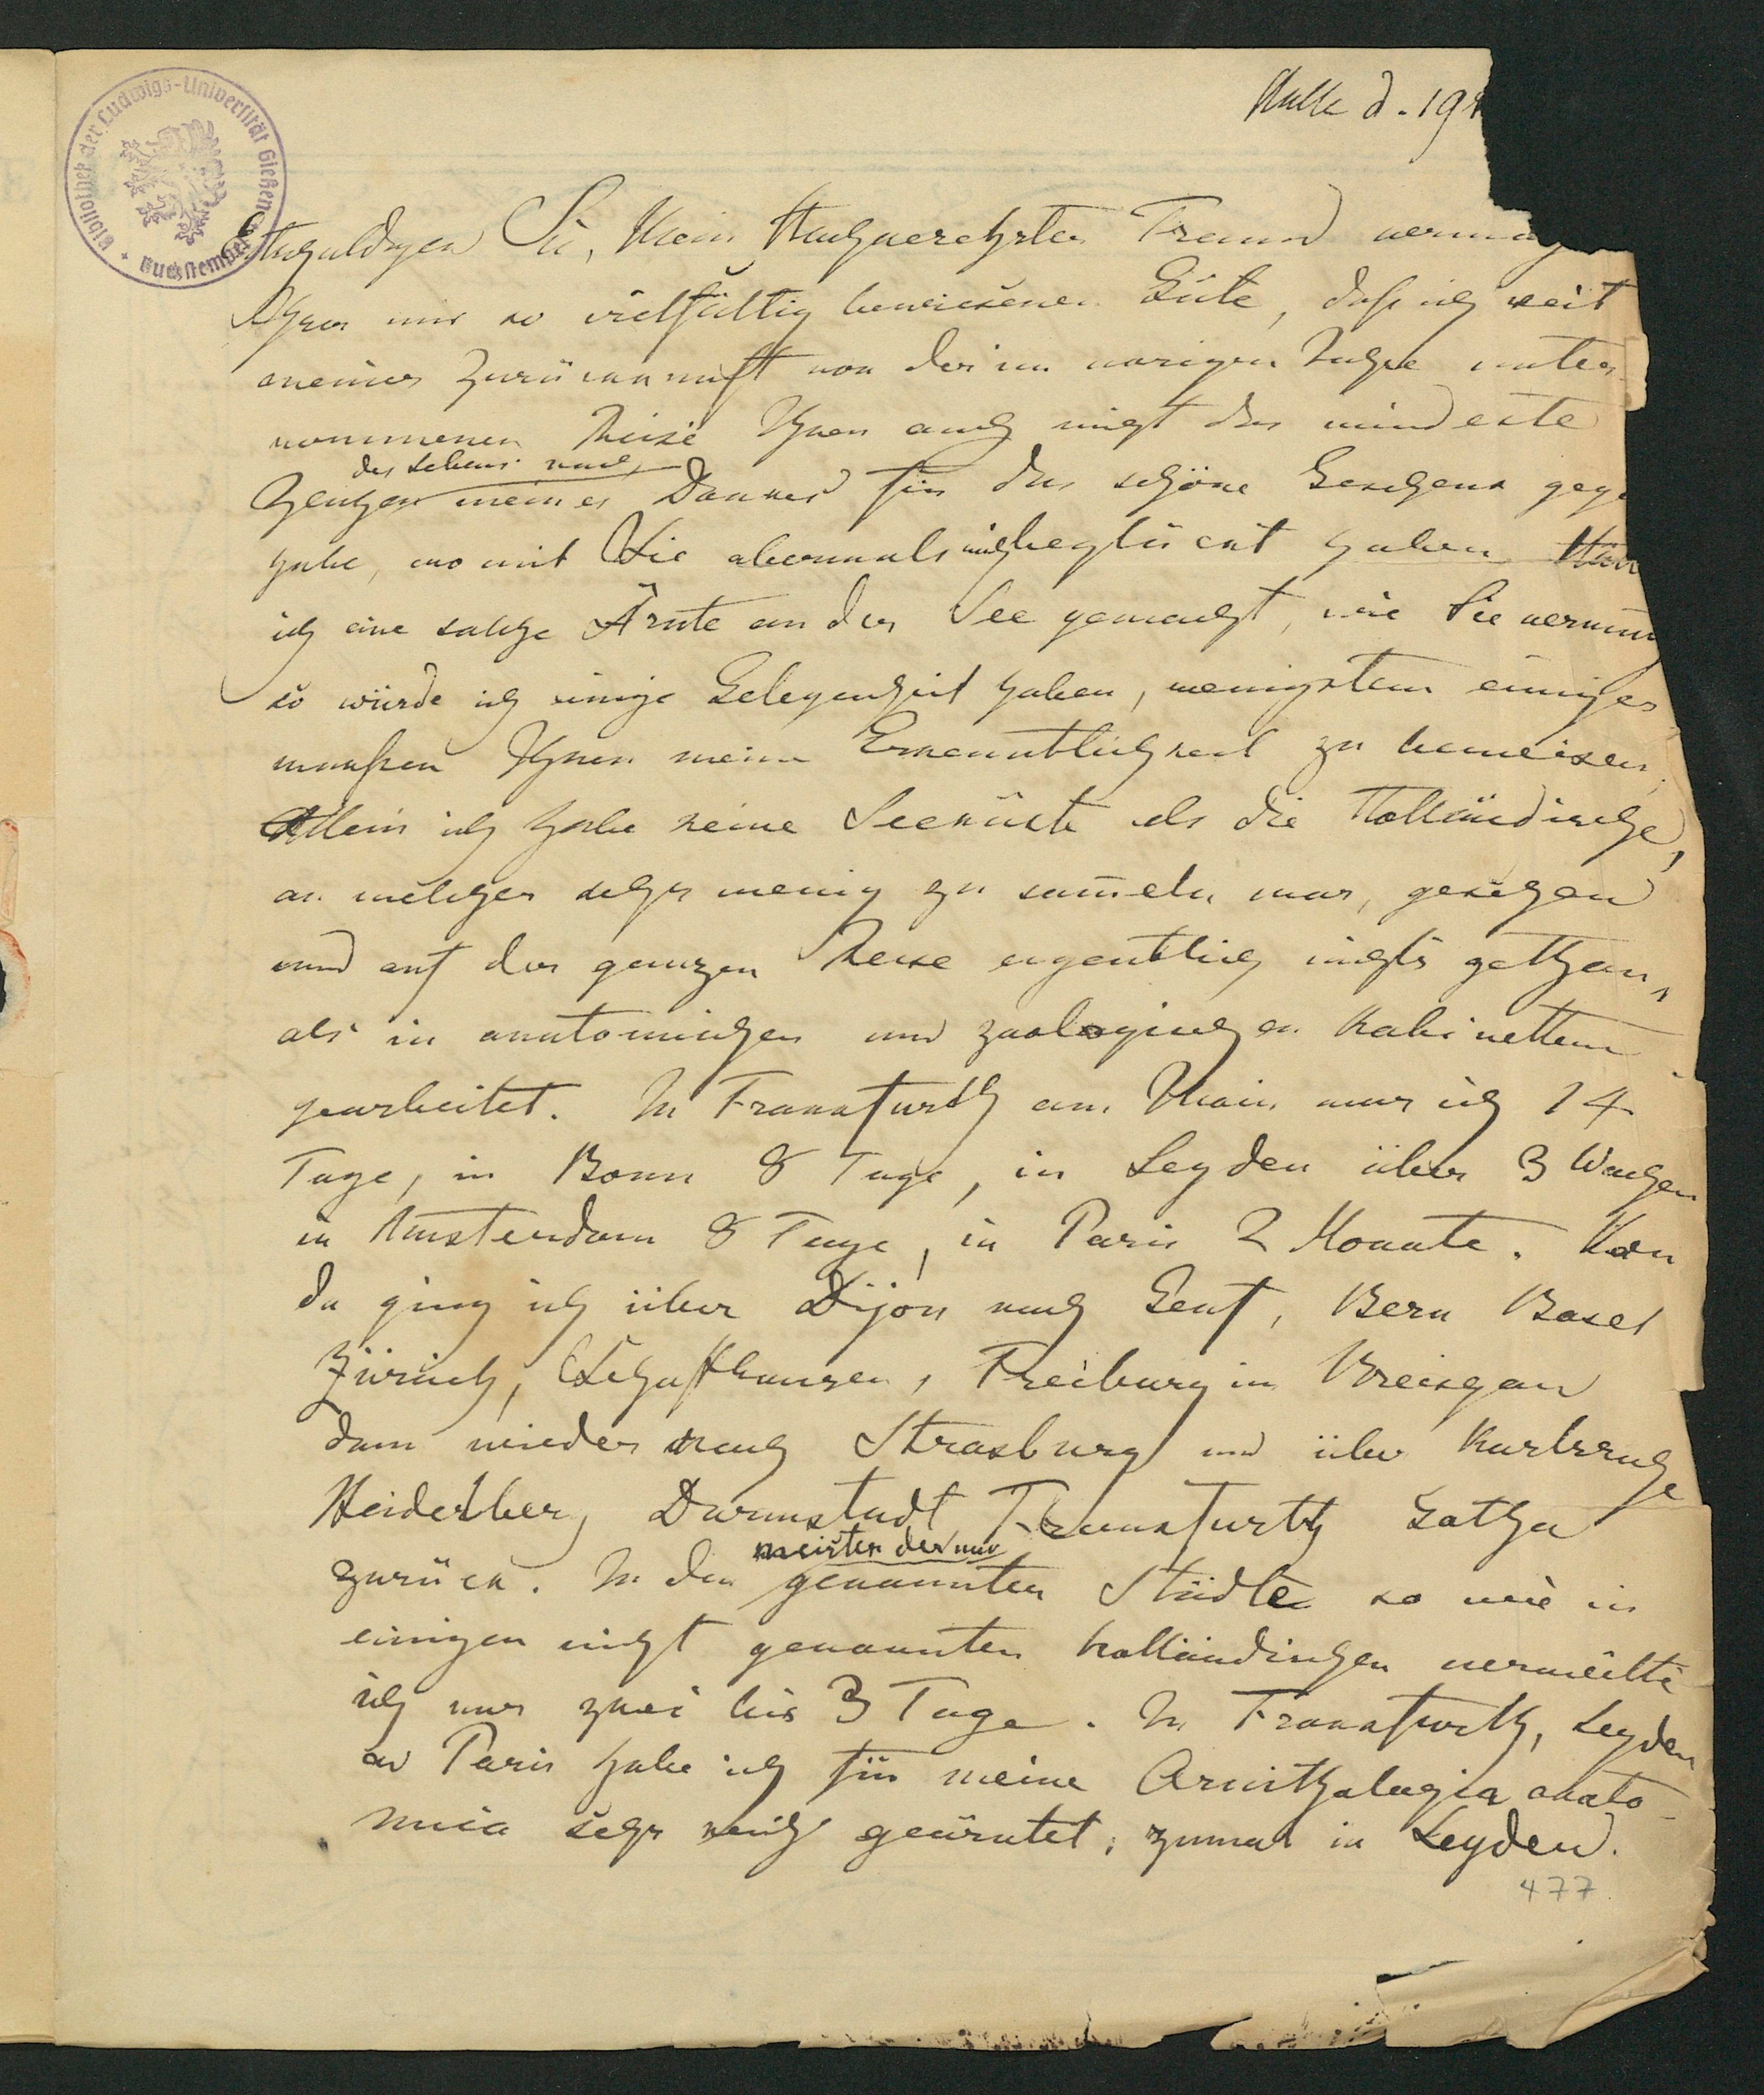 Halle d. 19
Bibliothek der Ludwigs-Universität Gießen
Buchstempel
Entschuldigen Sie, Mein Hochverehrter Freund vermög
Ihrer mir so vielfältig bewiesenen Güte, daß ich seit
meiner Zurückkunft von der im vorigen Jahre unter
nommenen Reise Ihnen auch nicht das mindeste
des Lebens und
Zeichen meines Dankes für das schöne Geschenk gege
habe, womit Sie abermals mich beglückt haben. Hät
ich eine solche Ärnte an der See gemacht, wie Sie vermu
so würde ich einige Gelegenheit haben, wenigstens einiger
maaßen Ihnen meine Erkenntlichkeit zu beweisen.
Allein ich habe keine Seeküste als die Holländische,
an welcher sehr wenig zu sam̄eln war, gesehen
und auf der ganzen Reise eigentlich nichts gethan,
als in anatomischen und zoologischen Kabinetten
gearbeitet. In Frankfurth am Main war ich 14
Tage, in Bonn 8 Tage, in Leyden über 3 Wochen
in Amsterdam 8 Tage, in Paris 2 Monate. Von
da ging ich über Dijon nach Genf, Bern Basel
Zürich, Schaffhausen, Freiburg im Breisgau
dann wieder nach Strasburg und über Karlsruhe
Heidelberg Darmstadt Frankfurth Gotha
meisten der nur
zurück. In den genannten Städte so wie in
einigen nicht genannten holländischen verweilte
ich nur zwei bis 3 Tage. In Frankfurth, Leyden
und Paris habe ich für meine Ornithologia anato-
mica sehr reich geärntet, zumal in Leyden.
477